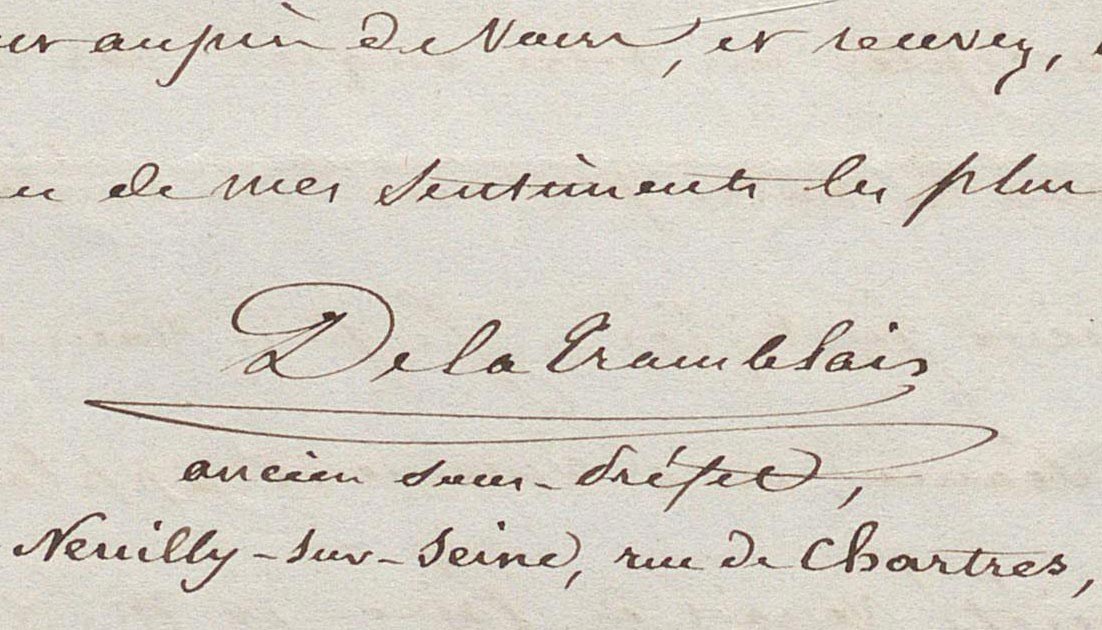 auprès de Vous, et recevez,
de mes sentiments les plus
De la Tramblais
ancien sous-préfet,
Neuilly-sur-Seine, rue de Chartres,